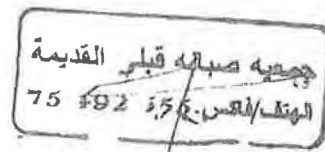 جمعيه صيانه قبلي القديمة
الهتف/الفاكس 75 492 454